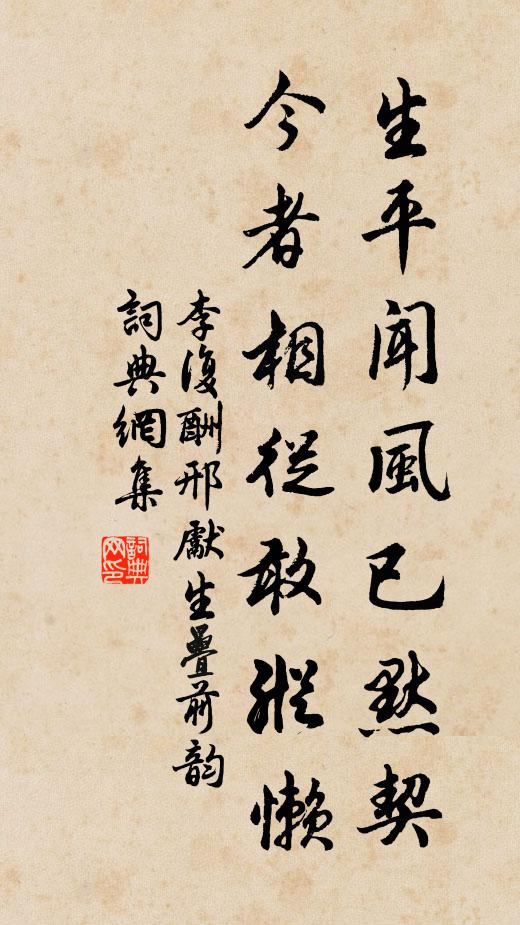 生平聞風已默契
今者相從敢縱懶
李復酬邢獻生疊前韵
詞典網集
詞典网印